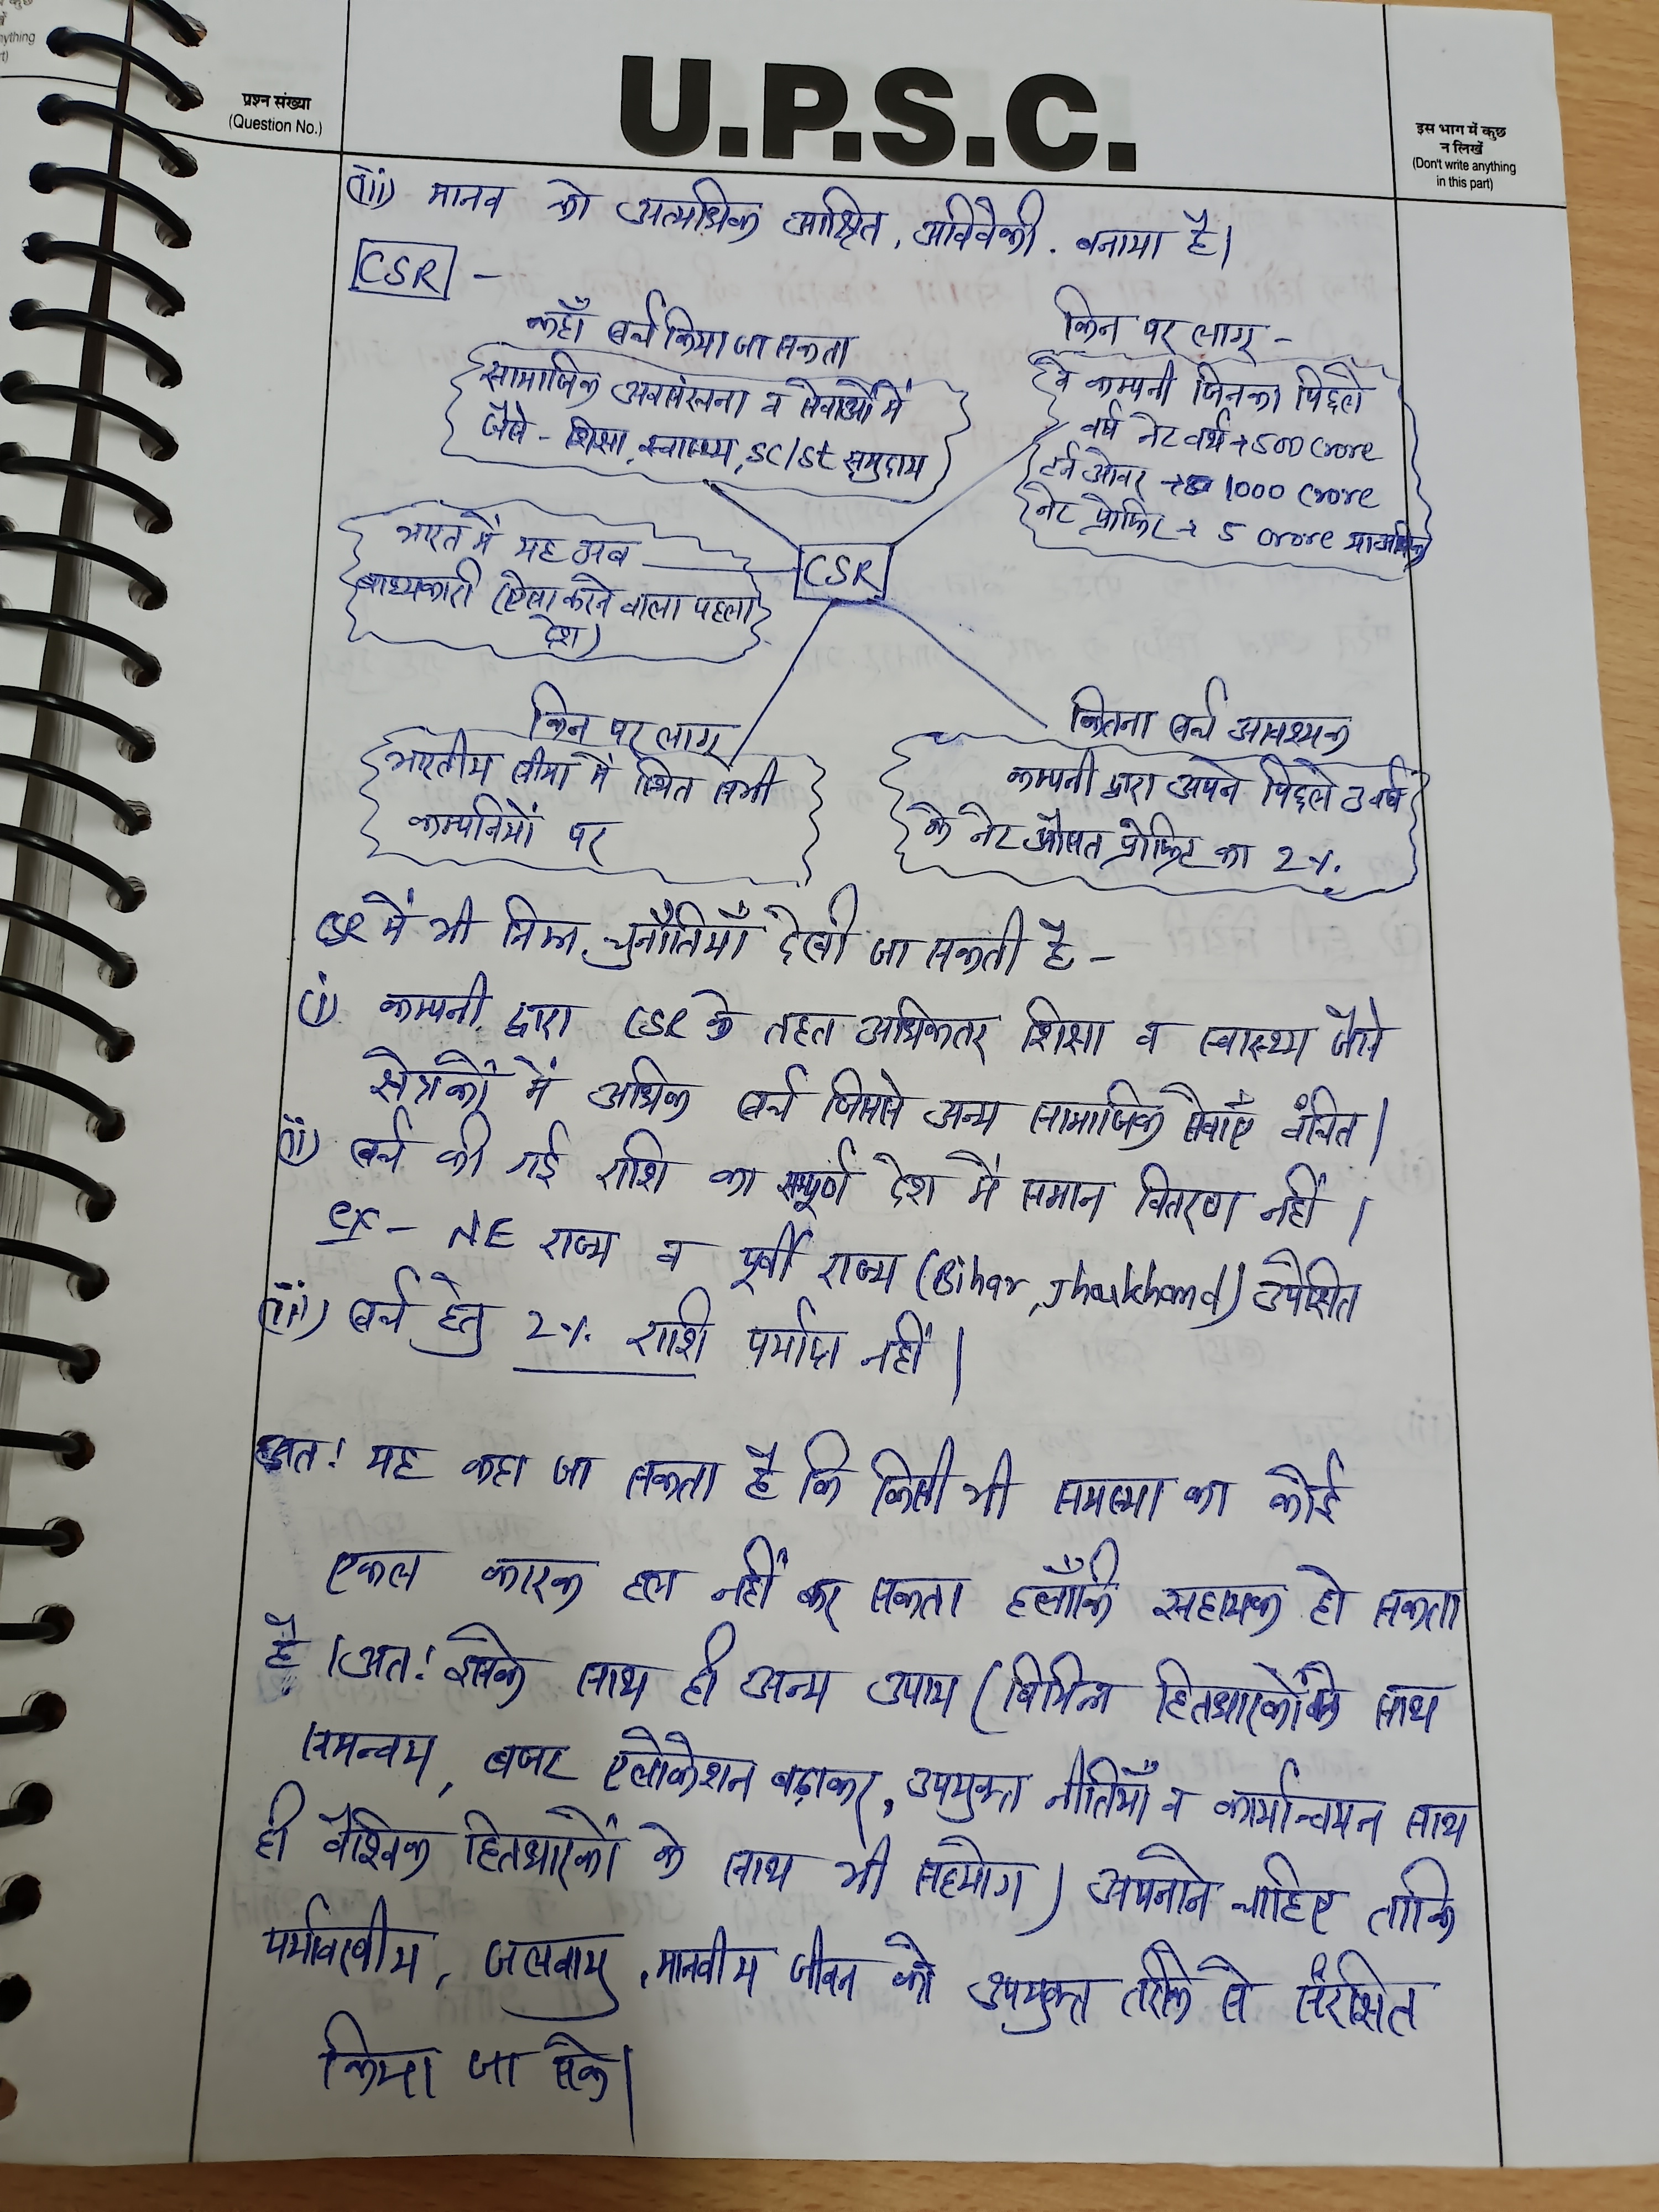 ything
प्रश्न संख्या
(Question No.)
U.P.S.C.
इस भाग में कुछ
न लिखें
(Don't write anything
in this part)
(iii) मानव को अत्यधिक आश्रित, अविवेकी. बनाया है।
CSR -
कहाँ खर्च किया जा सकता
सामाजिक अवसंरचना व सेवाओं में
जैसे - शिक्षा, स्वास्थ्य, SC/St समुदाय
किन पर लागू -
वे कम्पनी जिनका पिछले
वर्ष नेटवर्थ → 500 crore
टर्न ओवर → 1000 crore
नेट प्रोफिट → 5 crore या अधिक
भारत में यह अब
बाध्यकारी (ऐसा करने वाला पहला
देश)
CSR
किन पर लागू
भारतीय सीमा में स्थित सभी
कम्पनियों पर
कितना खर्च आवश्यक
कम्पनी द्वारा अपने पिछले 3 वर्ष
के नेट औसत प्रोफिट का 2%.
CSR में भी निम्न चुनौतियाँ देखी जा सकती है -
(i) कम्पनी द्वारा CSR के तहत अधिकतर शिक्षा व स्वास्थ्य जैसे
क्षेत्रकों में अधिक खर्च जिससे अन्य सामाजिक सेवाएँ वंचित।
(ii) खर्च की गई राशि का सम्पूर्ण देश में समान वितरण नहीं।
ex - NE राज्य व पूर्वी राज्य (Bihar, Jharkhand) उपेक्षित
(iii) खर्च हेतु 2% राशि पर्याप्त नहीं।
अत: यह कहा जा सकता है कि किसी भी समस्या का कोई
एकल कारक हल नहीं कर सकता हलाँकि सहायक हो सकता
है। अत: इसके साथ ही अन्य उपाय (विभिन्न हितधारकों के साथ
समन्वय, बजट एलोकेशन बढ़ाकर, उपयुक्त नीतियाँ व कार्यान्वयन साथ
ही वैश्विक हितधारकों के साथ भी सहयोग) अपनाने चाहिए ताकि
पर्यावरणीय, जलवायु, मानवीय जीवन को उपयुक्त तरीके से संरक्षित
किया जा सके।